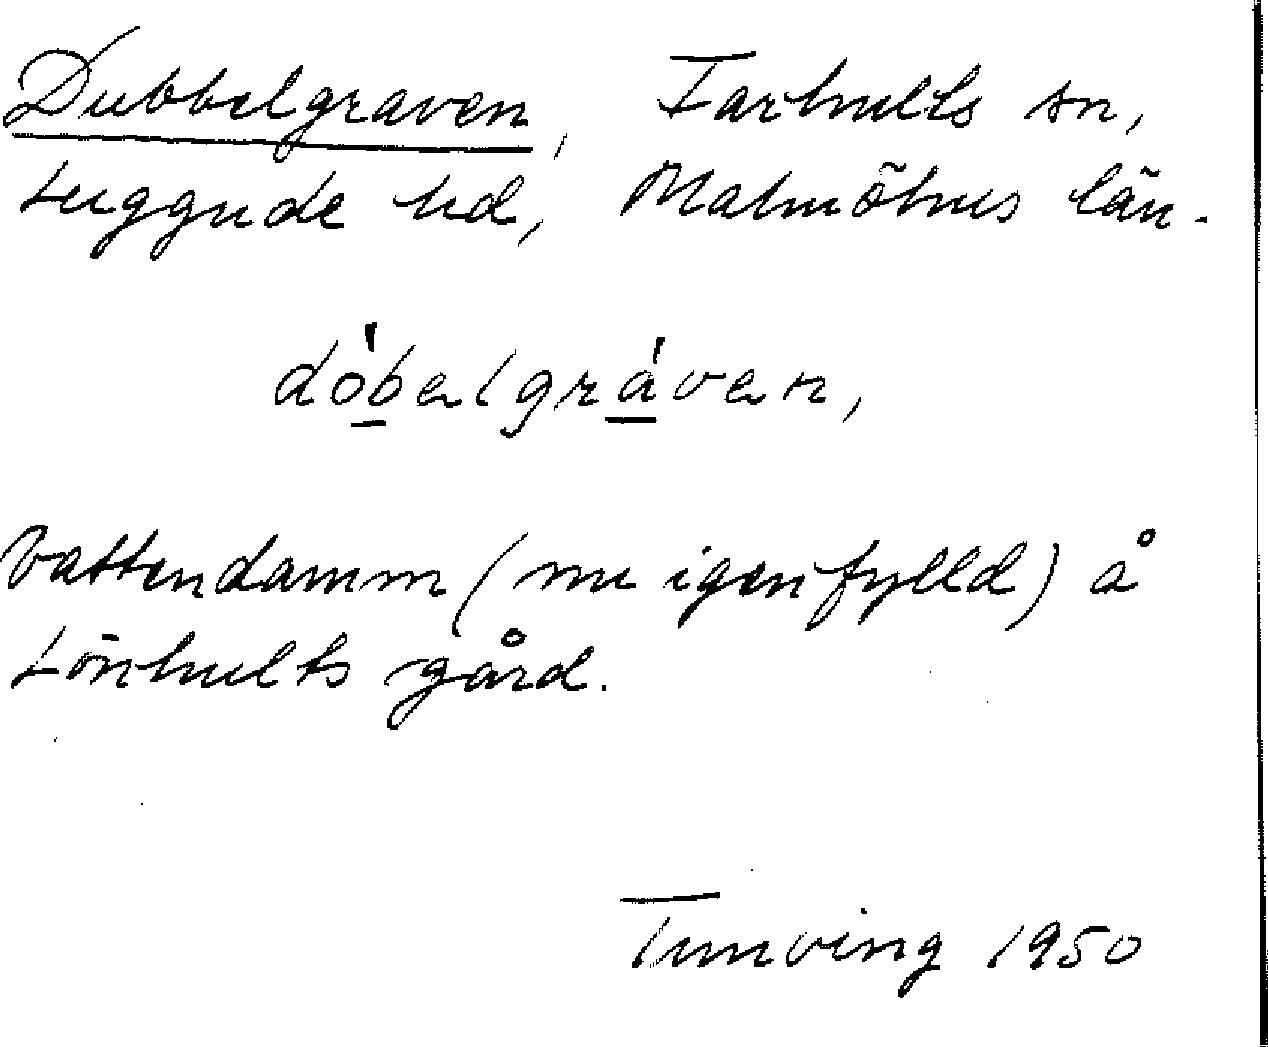 Dubbelgraven, Farhults sn,
Luggude hd, Malmöhus län.
dòbelgráven,
Vattendamm (nu igenfylld) å
Lönhults gård.
Tunving 1950